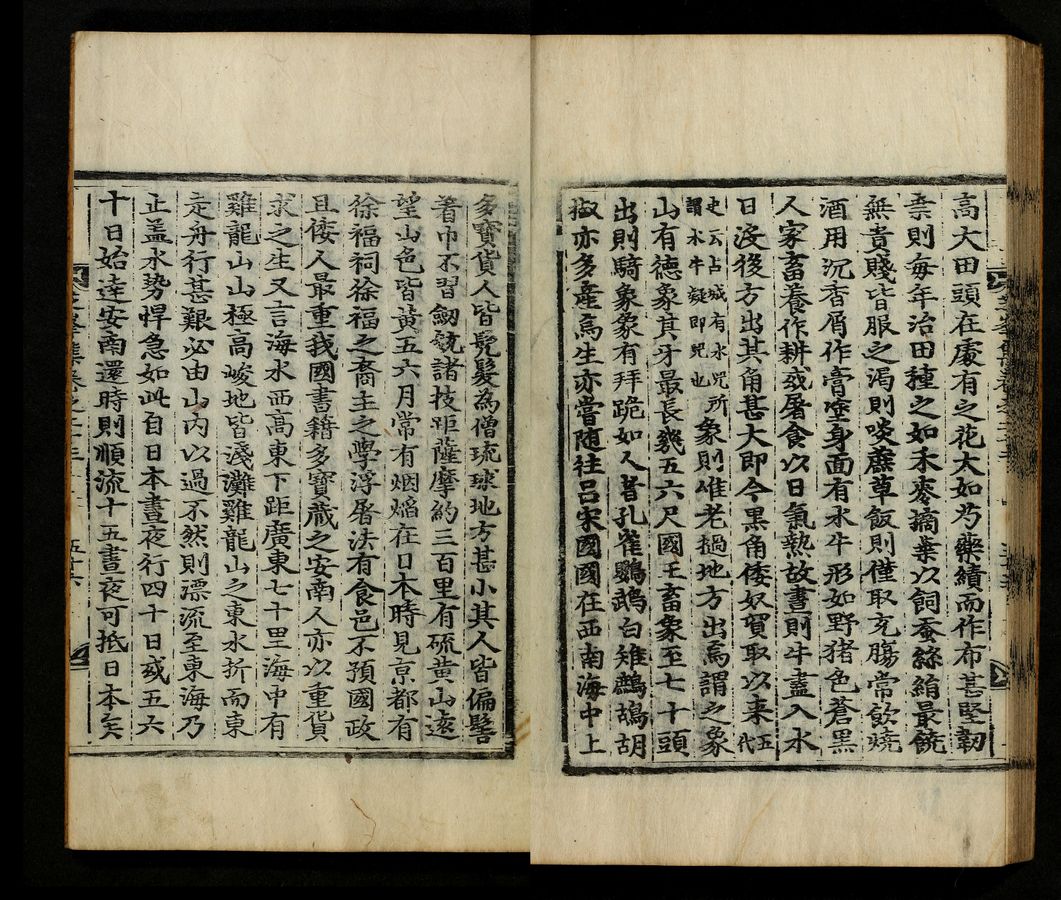 高大田頭在處有之花大如芍藥績而作布甚堅韌
桑則每年治田種之如禾麥摘葉以飼蚕絲絹最饒
無貴賤皆服之渴則啖蔗草飯則僅取充膓常飲燒
酒用沉香屑作膏塗身面有水牛形如野猪色蒼黑
人家畜養作耕或屠食以日氣熱故晝則牛盡入水
日沒後方出其角甚大即今黑角倭奴貿取以来五代
史云占城有水兕所
謂水牛疑即兕也
象則唯老撾地方出焉謂之象
山有德象其牙最長幾五六尺國王畜象至七十頭
出則騎象象有拜跪如人者孔雀鸚鵡白雉鷓鴣胡
椒亦多産焉生亦嘗随往呂宋國國在西南海中上
多寶貨人皆髡髮為僧琉球地方甚小其人皆偏髻
著巾不習劒銃諸技距薩摩約三百里有硫黄山遠
望山色皆黄五六月常有烟焰在日本時見京都有
徐福祠徐福之裔主之學浮屠法有食邑不預國政
且倭人最重我國書籍多寶藏之安南人亦以重貨
求之生又言海水西高東下距廣東七十里海中有
雞龍山山極高峻地皆淺灘雞龍山之東水折而東
走舟行甚艱必由山内以過不然則漂流至東海乃
止盖水勢悍急如此自日本晝夜行四十日或五六
十日始達安南還時則順流十五晝夜可抵日本矣
五十六